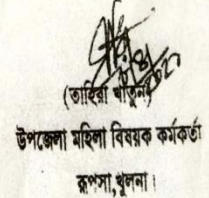 (তাহিরা খাতুন)
উপজেলা মহিলা বিষয়ক কর্মকর্তা
রূপসা,খুলনা।